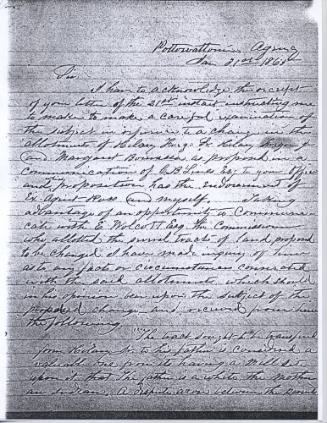 Pottowattomie Agency
Jan 31st 1868
Sir
I have to acknowledge the receipt
of your letter of the 21st instant instructing me
to make to make a careful examination of
the subject in reference to a change in the
allotment of
and Margaret Bourassa as proposed in a
communication of Esq to your office
and proposition has the endorsement of
Ex Agent Ross and myself. Taking
advantage of an opportunity to communi-
cate with E. Wolcott Esq the Commissioner
who allotted the several tracts of land proposed
to be changed I have made inquiry of him
as to any facts or circumstances connected
with the said allotments, which should
in his opinion bear upon the subject of the
change and received from him
the following.
"The tract sought to be transferred
from to his father is considered a
valuable one from its having a
upon it that the father is a white the mother
an Indian. A dispute arose between the